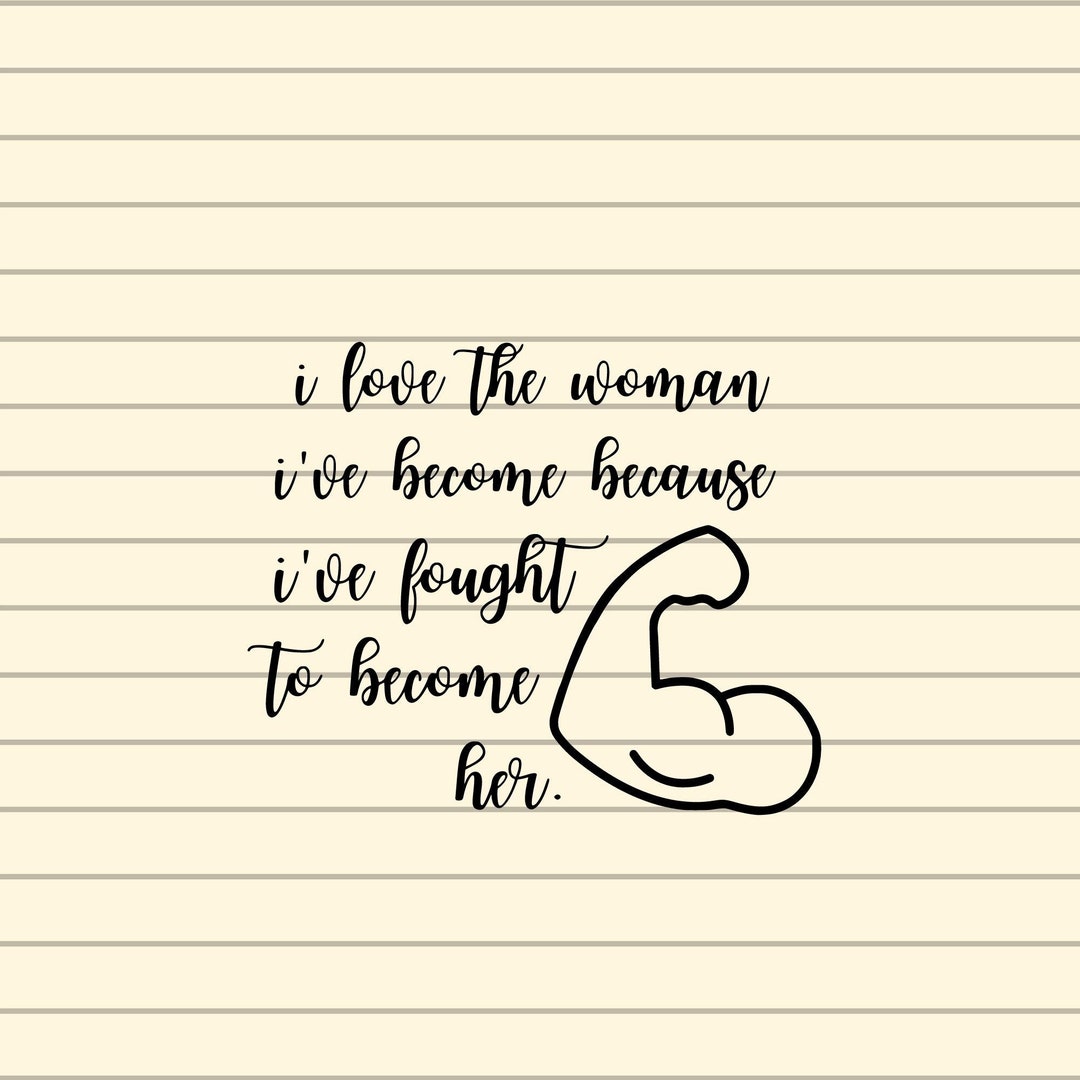 i love the woman
i've become because
i've fought
to become
her.